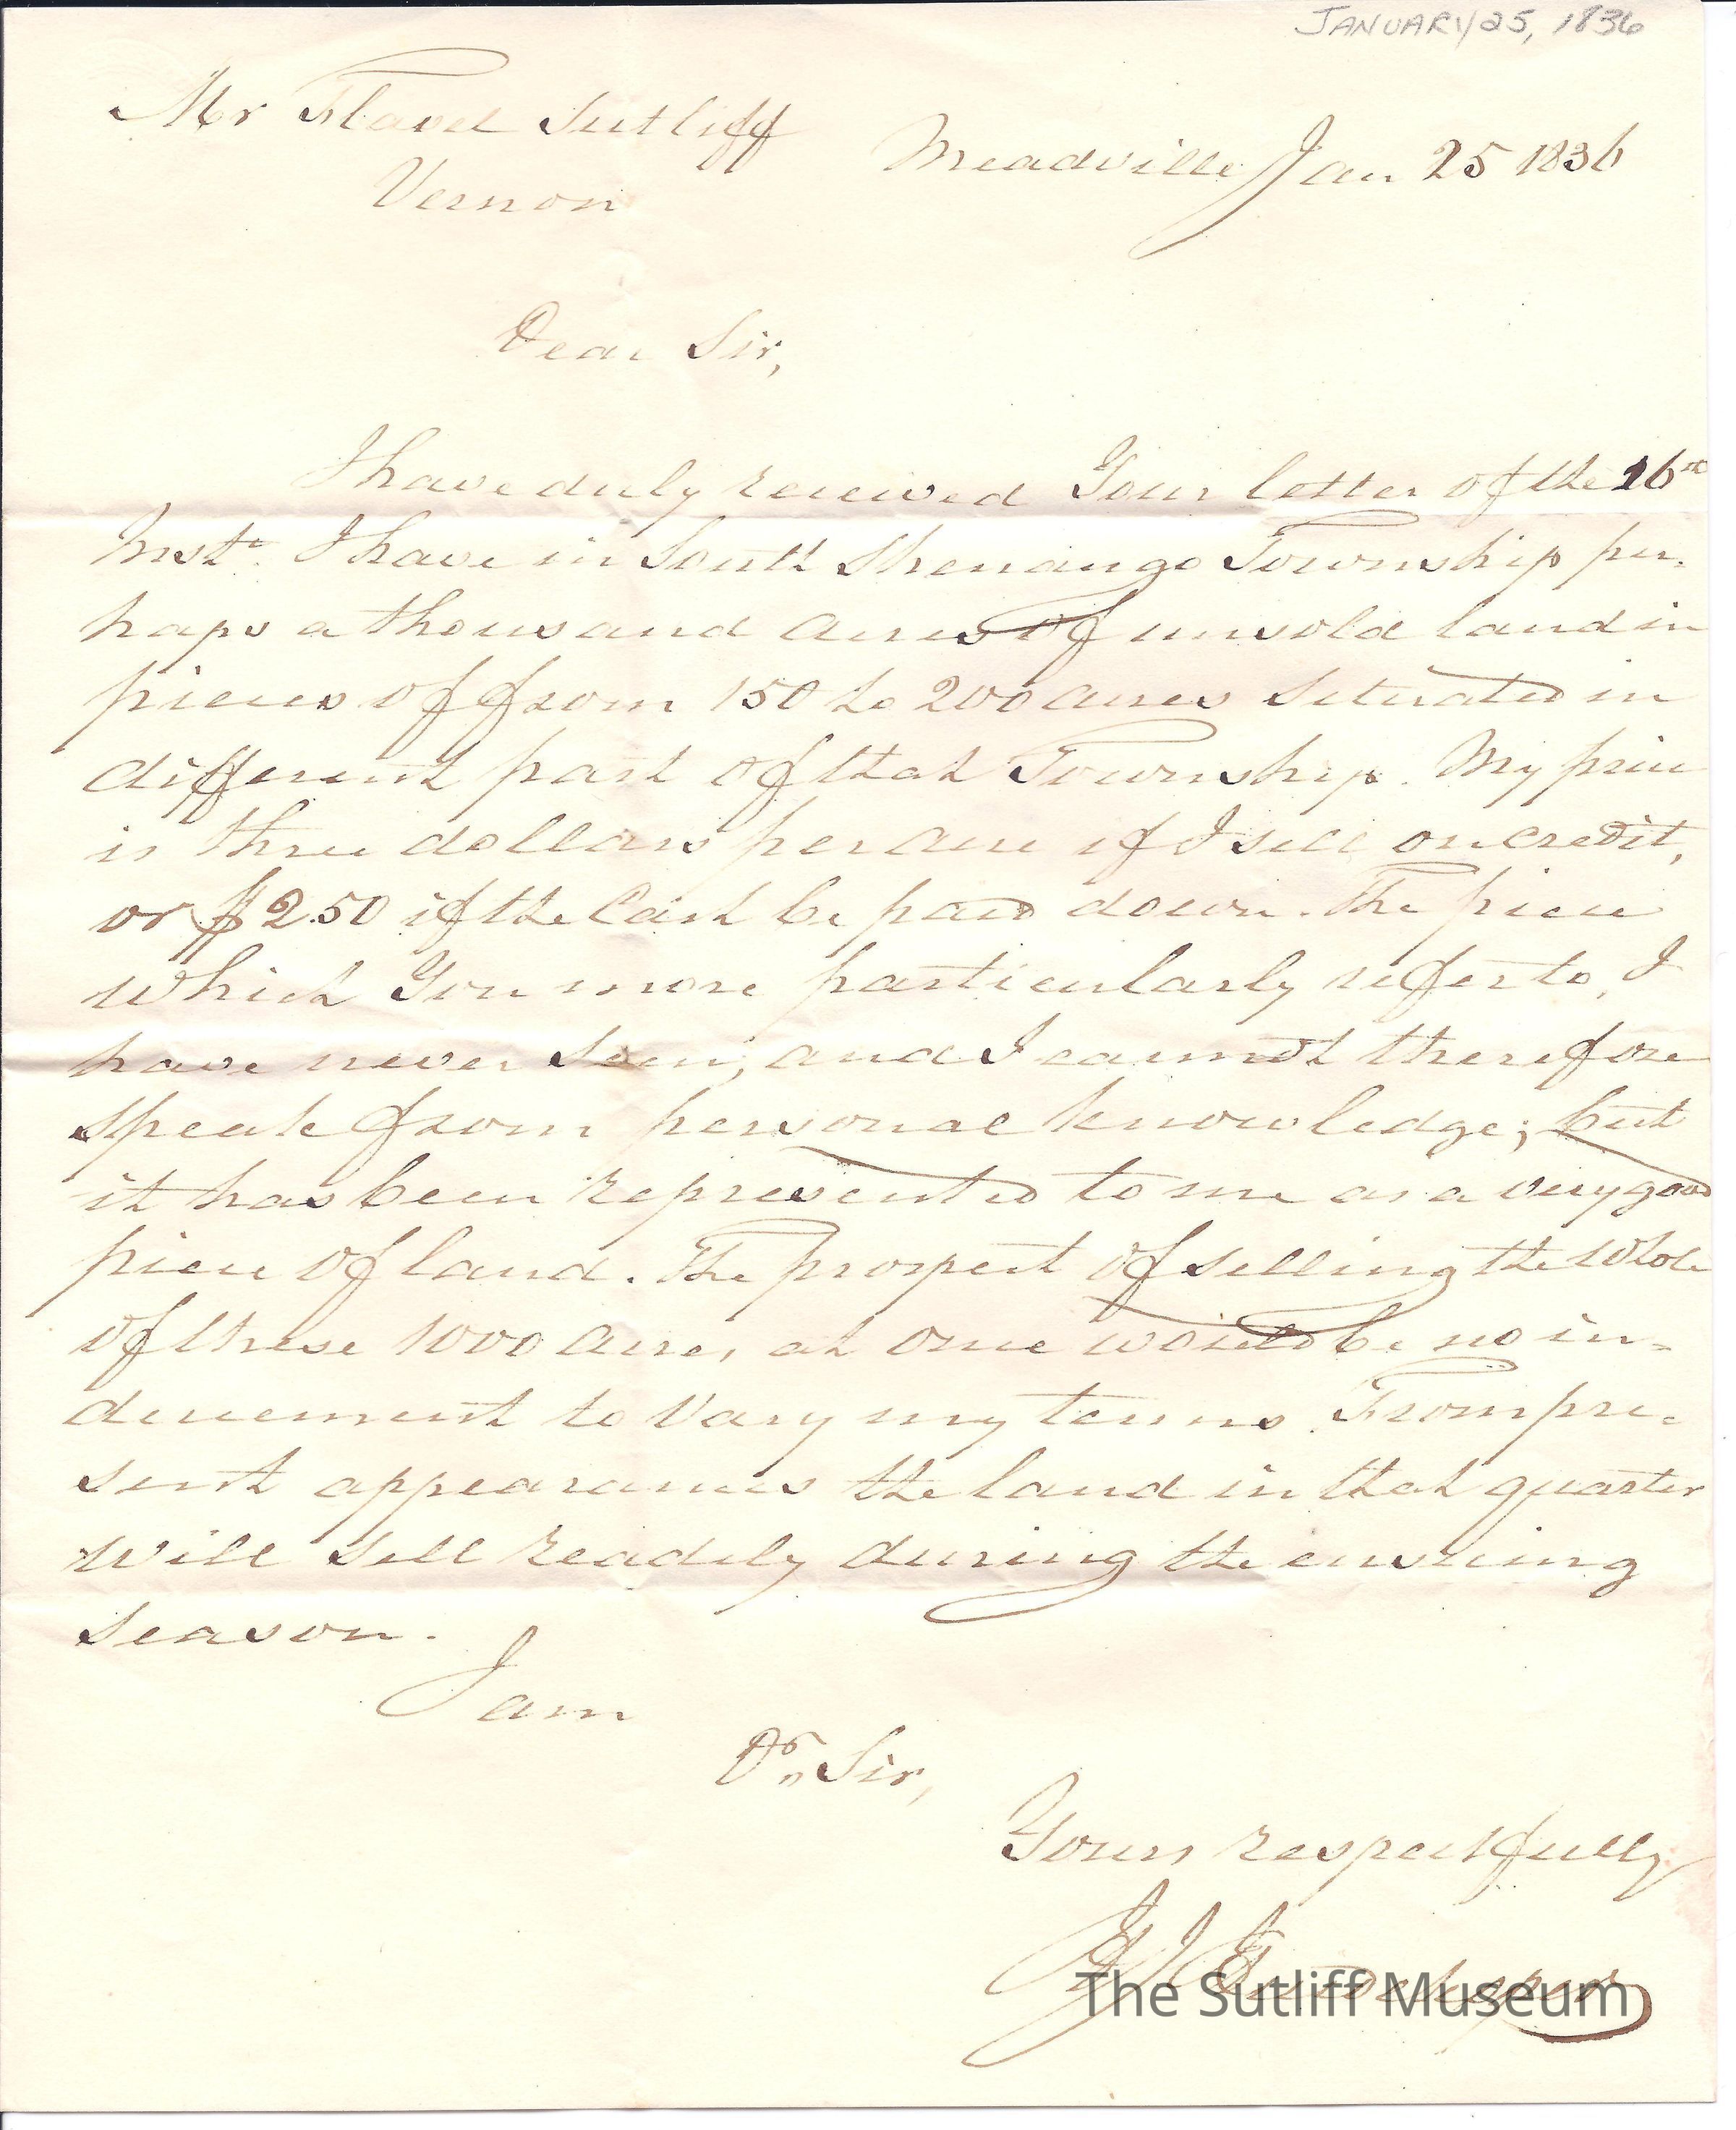 JANUARY 25, 1836
Mr Flavel Sutliff
Meadville Jan 25 1836
Vernon
Dear Sir,
I have duly received Your letter of the 16th
Inst. I have in South Shenango Township per-
haps a thousand acres of unsold land in
pieces of from 150 to 200 acres situated in
different part of that Township. My price
is three dollars per acre if I sell on credit,
or $2.50 if the Cash be paid down. The piece
which You more particularly refer to, I
have never seen, and I cannot therefore
speak from personal knowledge; but
it has been represented to me as a very good
piece of land. The prospect of selling the whole
of these 1000 acres, at once would be no in-
ducement to vary my terms. From pre-
sent appearances the land in that quarter
will sell readily during the ensuing
season.
I am
Dr Sir,
Yours respectfully
The Sutliff Museum